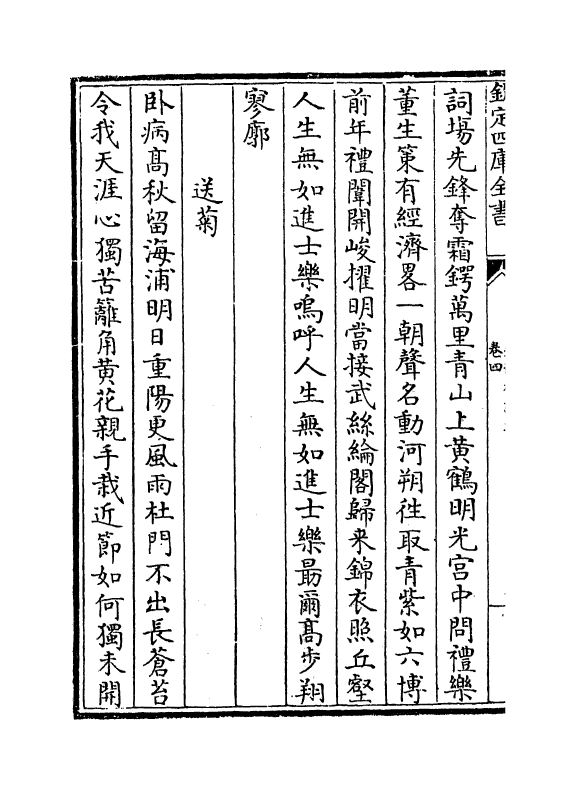 欽定四庫全書
卷四
詞塲先鋒奪霜鍔萬里青山上黄鶴明光宫中問禮樂
董生策有經濟畧一朝聲名動河朔徃取青紫如六博
前年禮闈開峻擢明當接武絲綸閣歸来錦衣照丘壑
人生無如進士樂嗚呼人生無如進士樂最爾髙步翔
寥廓
送菊
卧病髙秋留海浦明日重陽更風雨杜門不出長蒼苔
令我天涯心獨苦籬角黄花親手栽近節如何獨未開